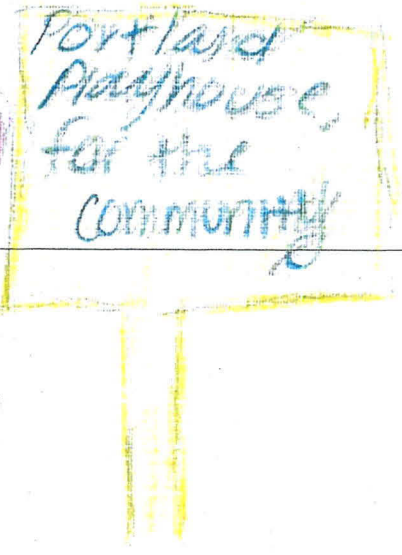 Portland
Playhouse,
for the
community